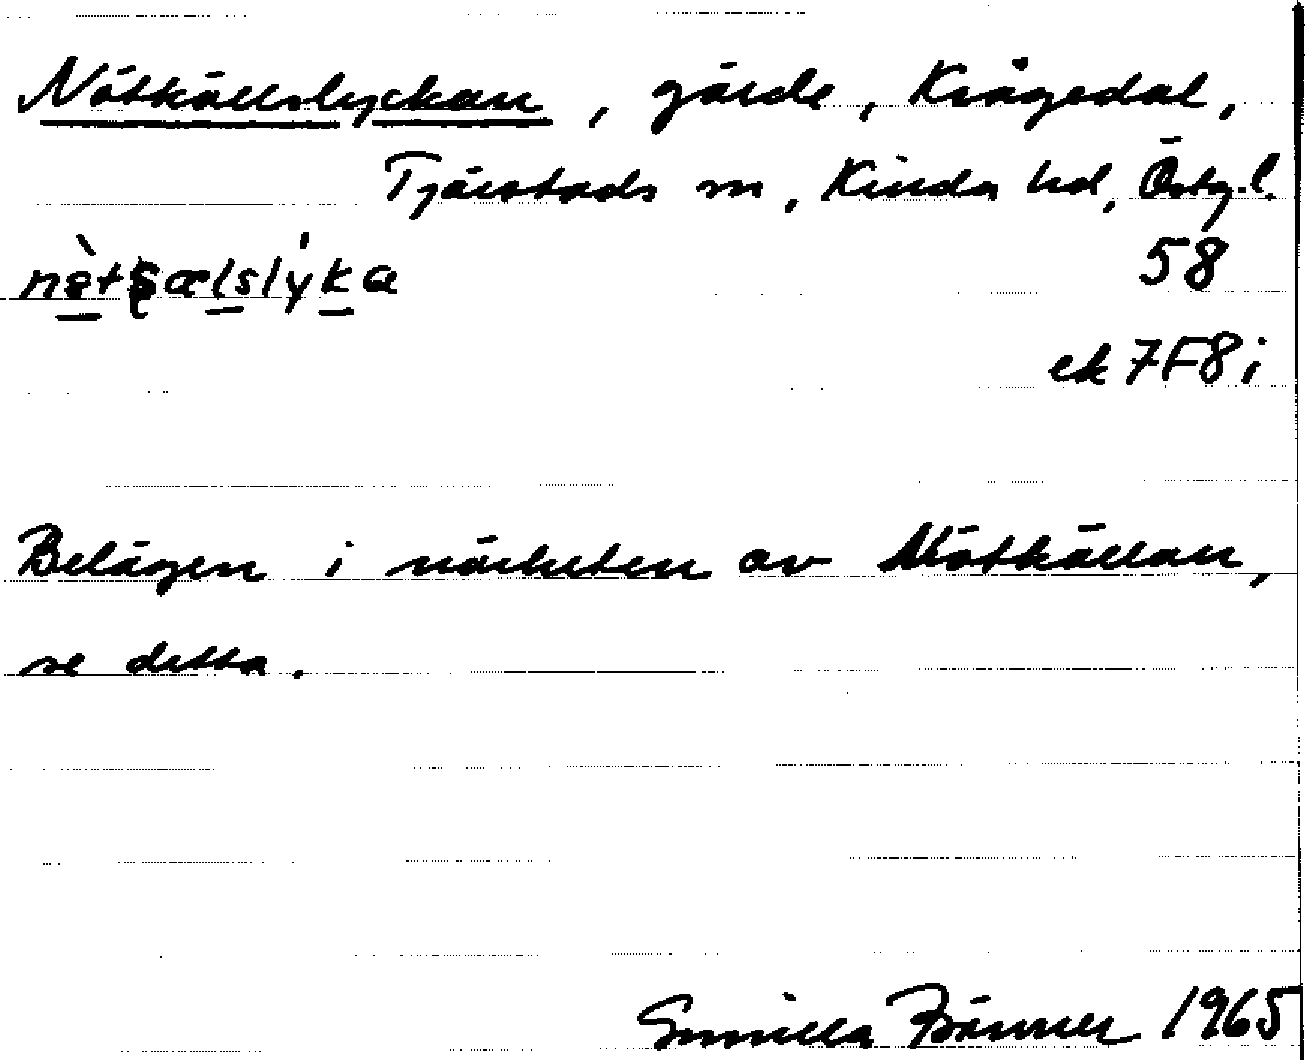 Nötkällslyckan, gärde, Krågedal,
Tjärstads sn, Kinda hd, Östg.l.
58
ek 7F8i
Belägen i närheten av Nötkällan,
se detta.
Gunilla 1965